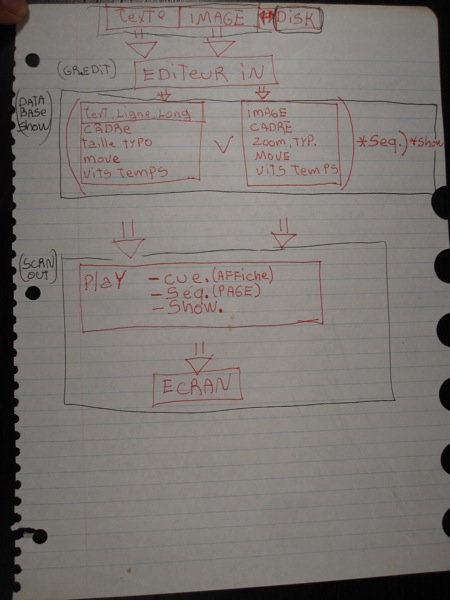 Texte IMAGE DISK
(GR.EDIT) EDITEUR IN
(DATA BASE Show)
text, Ligne, Long
CADRE
taille TYPO
move
vits temps
V
IMAGE
CADRE
ZOOM, TYP.
MOVE
vits temps
*Seq.) *show
(SCAN OUT)
PlaY - cue. (AFFiche)
- Seq. (PAGE)
- Show.
ECRAN